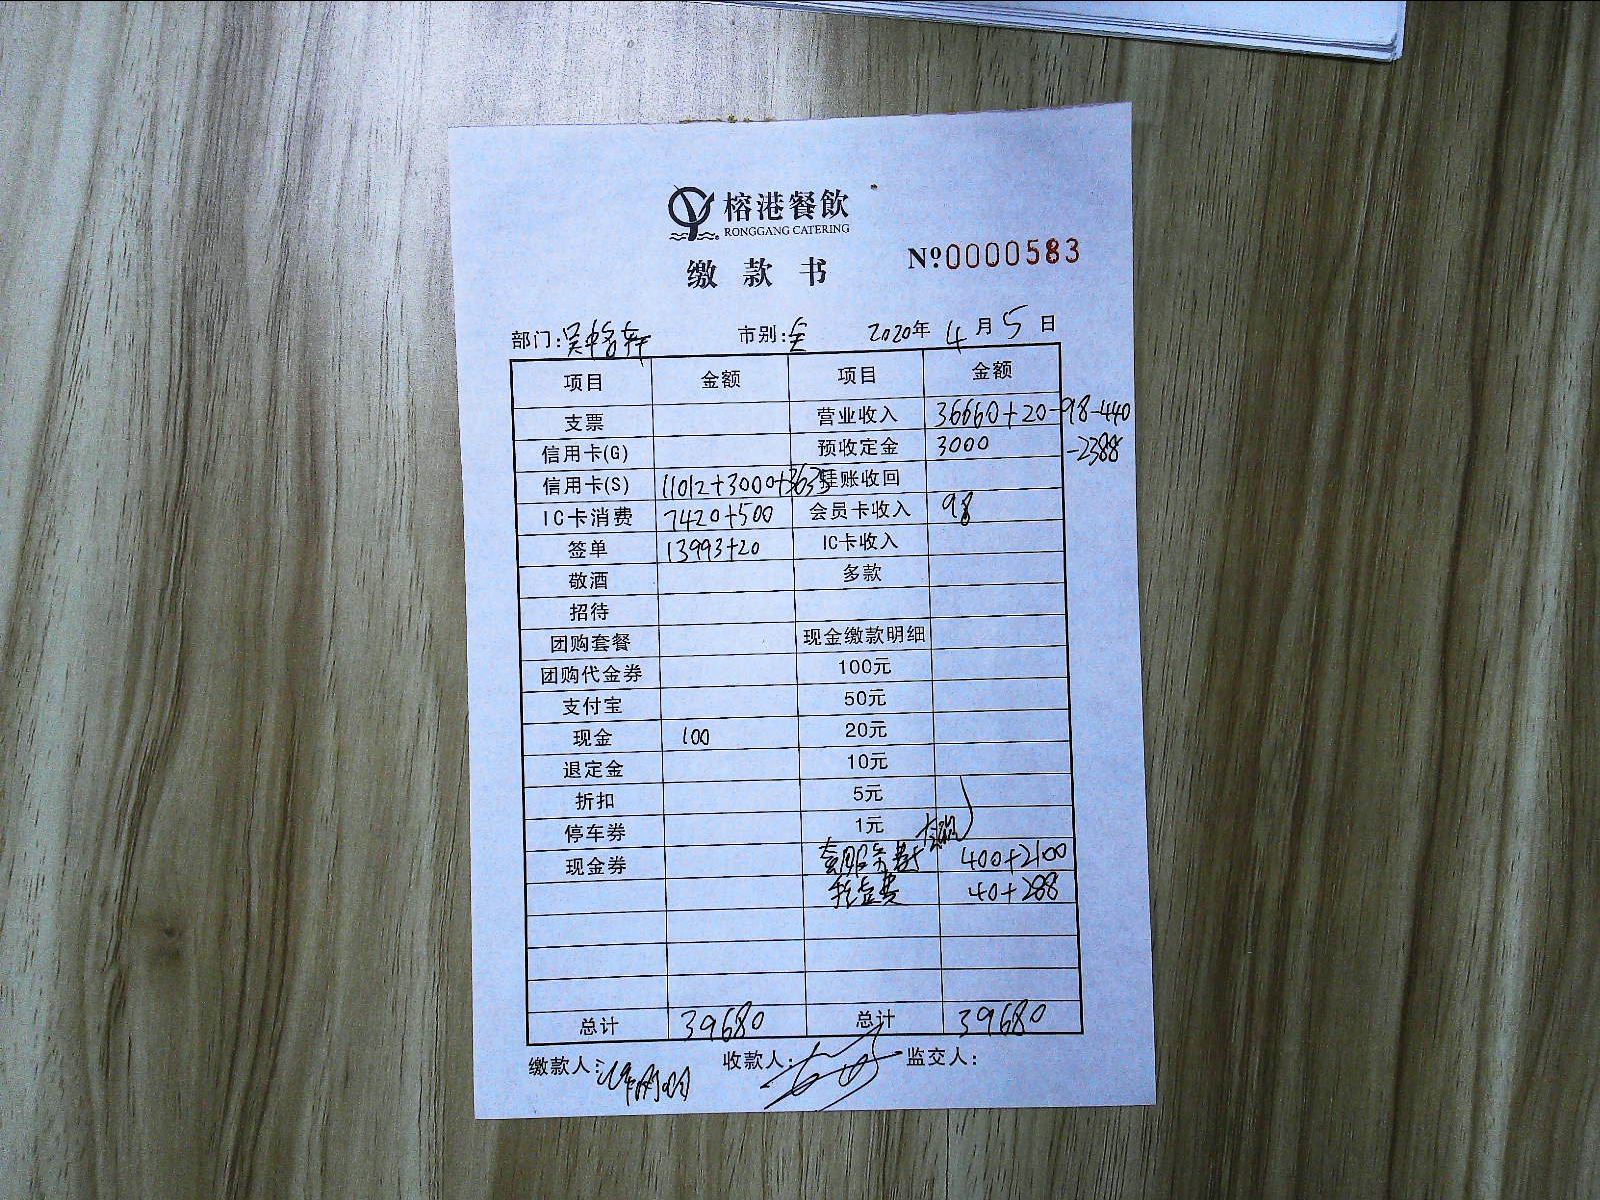 榕港餐飲
RONGGANG CATERING
缴款书 Nº0000583
部门: 市别:全 2020年4月5日
项目 金额 项目 金额
支票 营业收入 36660+20-98-440
信用卡(G) 预收定金 3000 -2388
信用卡(S) 11012+3000+3635 挂账收回
IC卡消费 7420+500 会员卡收入 98
签单 13993+20 IC卡收入
敬酒 多款
招待
团购套餐 现金缴款明细
团购代金券 100元
支付宝 50元
现金 100 20元
退定金 10元
折扣 5元
停车券 1元
现金券 400+2100
40+288
总计 39680 总计 39680
缴款人: 收款人: 监交人: